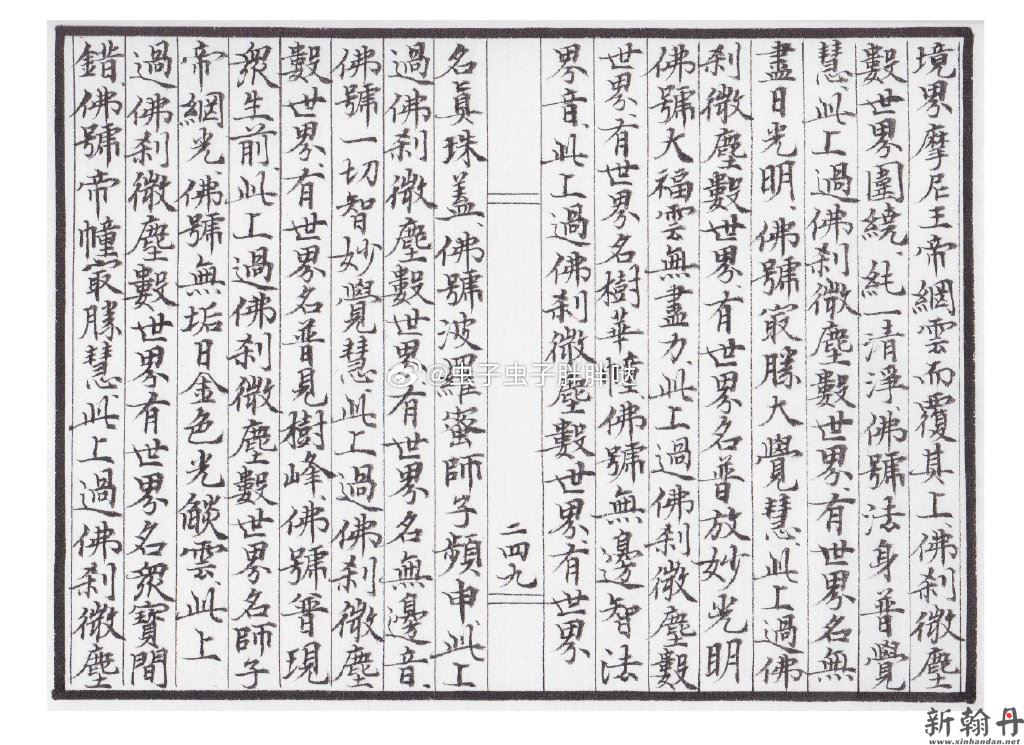 境界摩尼王帝網雲而覆其上、佛刹微塵
數世界圍繞、純一清淨、佛號法身普覺
慧、此上過佛刹微塵數世界、有世界名無
盡日光明、佛號㝡勝大覺慧、此上過佛
刹微塵數世界、有世界名普放妙光明
佛號大福雲無盡力、此上過佛刹微塵數
世界、有世界名樹華幢、佛號無邊智法
界音、此上過佛刹微塵數世界、有世界
二四九
名真珠蓋、佛號波羅蜜師子頻申、此上
過佛刹微塵數世界、有世界名無邊音、
佛號一切智妙覺慧、此上過佛刹微塵
數世界、有世界名普見樹峰、佛號普現
眾生前、此上過佛刹微塵數世界名師子
帝網光、佛號無垢日金色光燄雲、此上
過佛刹微塵數世界有世界名眾寶間
錯佛號帝幢㝡勝慧、此上過佛刹微塵
@虫子虫子胖胖哒
新翰丹
www.xinhandan.net